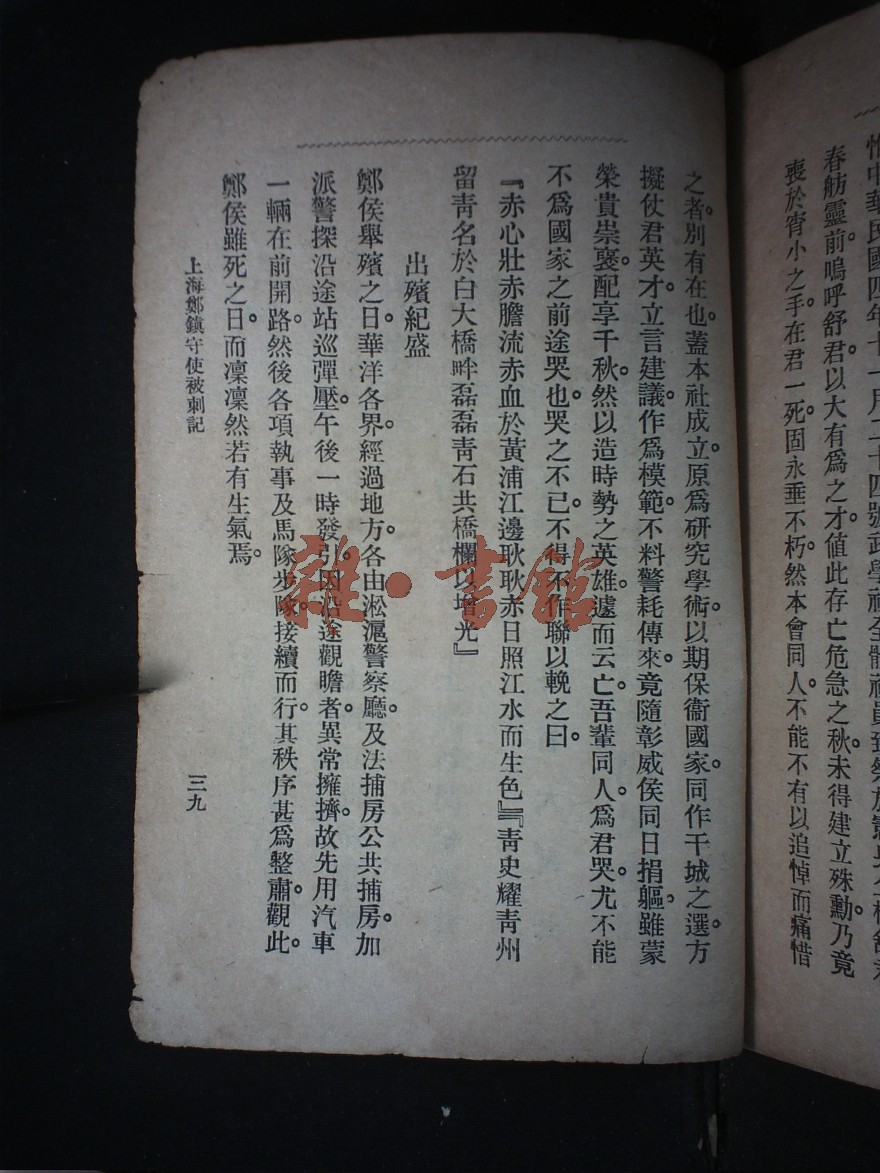 惟中華民國四年十一月二十四號武學社全體社員致祭於
春舫靈前。嗚呼舒君。以大有爲之才。値此存亡危急之秋。未得建立殊勳。乃竟
喪於宵小之手。在君一死。固永垂不朽。然本會同人。不能不有以追悼而痛惜
之者。別有在也。蓋本社成立。原爲硏究學術。以期保衞國家。同作干城之選。方
擬仗君英才。立言建議。作爲模範。不料警耗傳來。竟隨彰威侯同日捐軀。雖蒙
榮貴崇襃。配享千秋。然以造時勢之英雄。遽而云亡。吾輩同人。爲君哭。尤不能
不爲國家之前途哭也。哭之不已。不得不作聯以輓之曰。
『赤心壯赤膽流赤血於黃浦江邊耿耿赤日照江水而生色』『靑史耀靑州
留靑名於白大橋畔磊磊靑石共橋欄以增光』
出殯紀盛
鄭侯舉殯之日。華洋各界。經過地方。各由淞滬警察廳。及法捕房公共捕房。加
派警探沿途站巡彈壓。午後一時發引。因沿途觀瞻者。異常擁擠。故先用汽車
一輛在前開路。然後各項執事及馬隊步隊。接續而行。其秩序甚爲整肅。觀此。
鄭侯雖死之日。而凜凜然若有生氣焉。
上海鄭鎭守使被刺記
三九
雜·書館